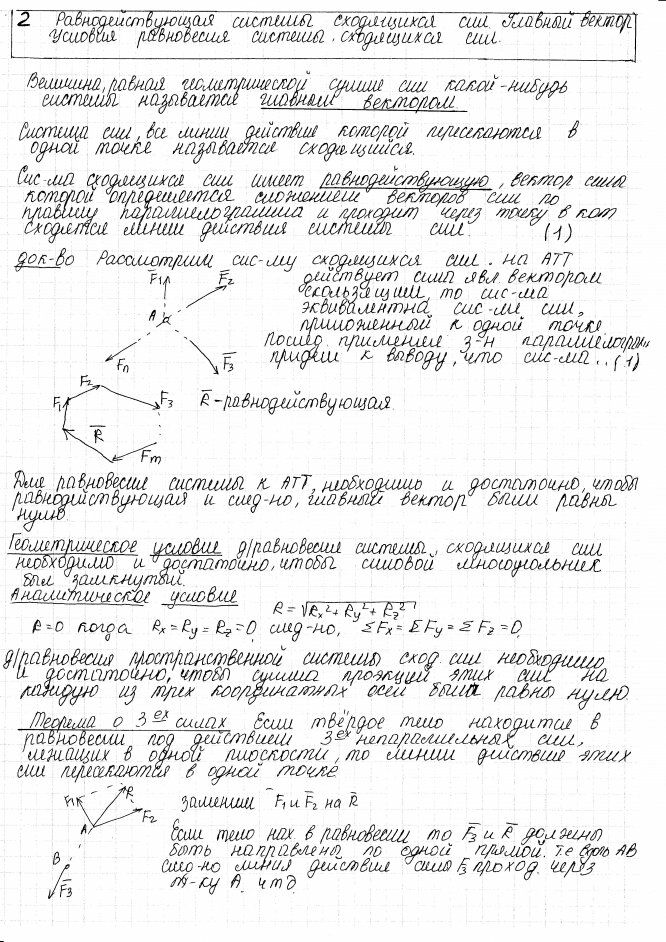 2 Равнодействующая системы сходящихся сил. Главный вектор
Условия равновесия системы сходящихся сил.
Величина, равная геометрической сумме сил какой-нибудь
системы называется главным вектором.
Система сил, все линии действие которой пересекаются в
одной точке называется сходящийся.
Сис-ма сходящихся сил имеет равнодействующую, вектор силы
которой определяется сложением векторов сил по
правилу параллелограмма и проходит через точку в кот
сходятся линии действия системы сил (1)
док-во Рассмотрим сис-му сходящихся сил. на АТТ
F̅1 F̅2 действует силы явл. вектором
скользящим, то сис-ма
A эквивалентна сис-ме сил,
приложенный к одной точке
послед. применяем з-н параллелограм
Fn F̅3 придем к выводу, что сис-ма...(1)
F2
F1 F3 R̅ - равнодействующая.
R̅
Fm
Для равновесие системы к АТТ, необходимо и достаточно, чтобы
равнодействующая и след-но, главный вектор были равны
нулю.
Геометрическое условие д/равновесие системы, сходящихся сил
необходимо и достаточно, чтобы силовой многоугольник
был замкнутый.
Аналитическое условие
R = √Rx² + Ry² + Rz²
R=0 когда Rx = Ry = Rz = 0, след-но, ΣFx = ΣFy = ΣFz = 0,
д/равновесия пространственной системы сход. сил необходимо
и достаточно, чтобы сумма проэкций этих сил на
каждую из трех координатных осей были равны нулю
Теорема о 3ех силах. Если твёрдое тело находится в
равновесии под действием 3ех непараллельных сил,
лежащих в одной плоскости, то линии действие этих
сил пересекаются в одной точке
F1 R F2 A заменим F̅1 и F̅2 на R̅
Если тело нах. в равновесии то F̅3 и R̅ должны
B быть направлены по одной прямой. т.е вдоль АВ
F̅3 след-но линия действия силы F3 проход. через
т-ку А. чтд